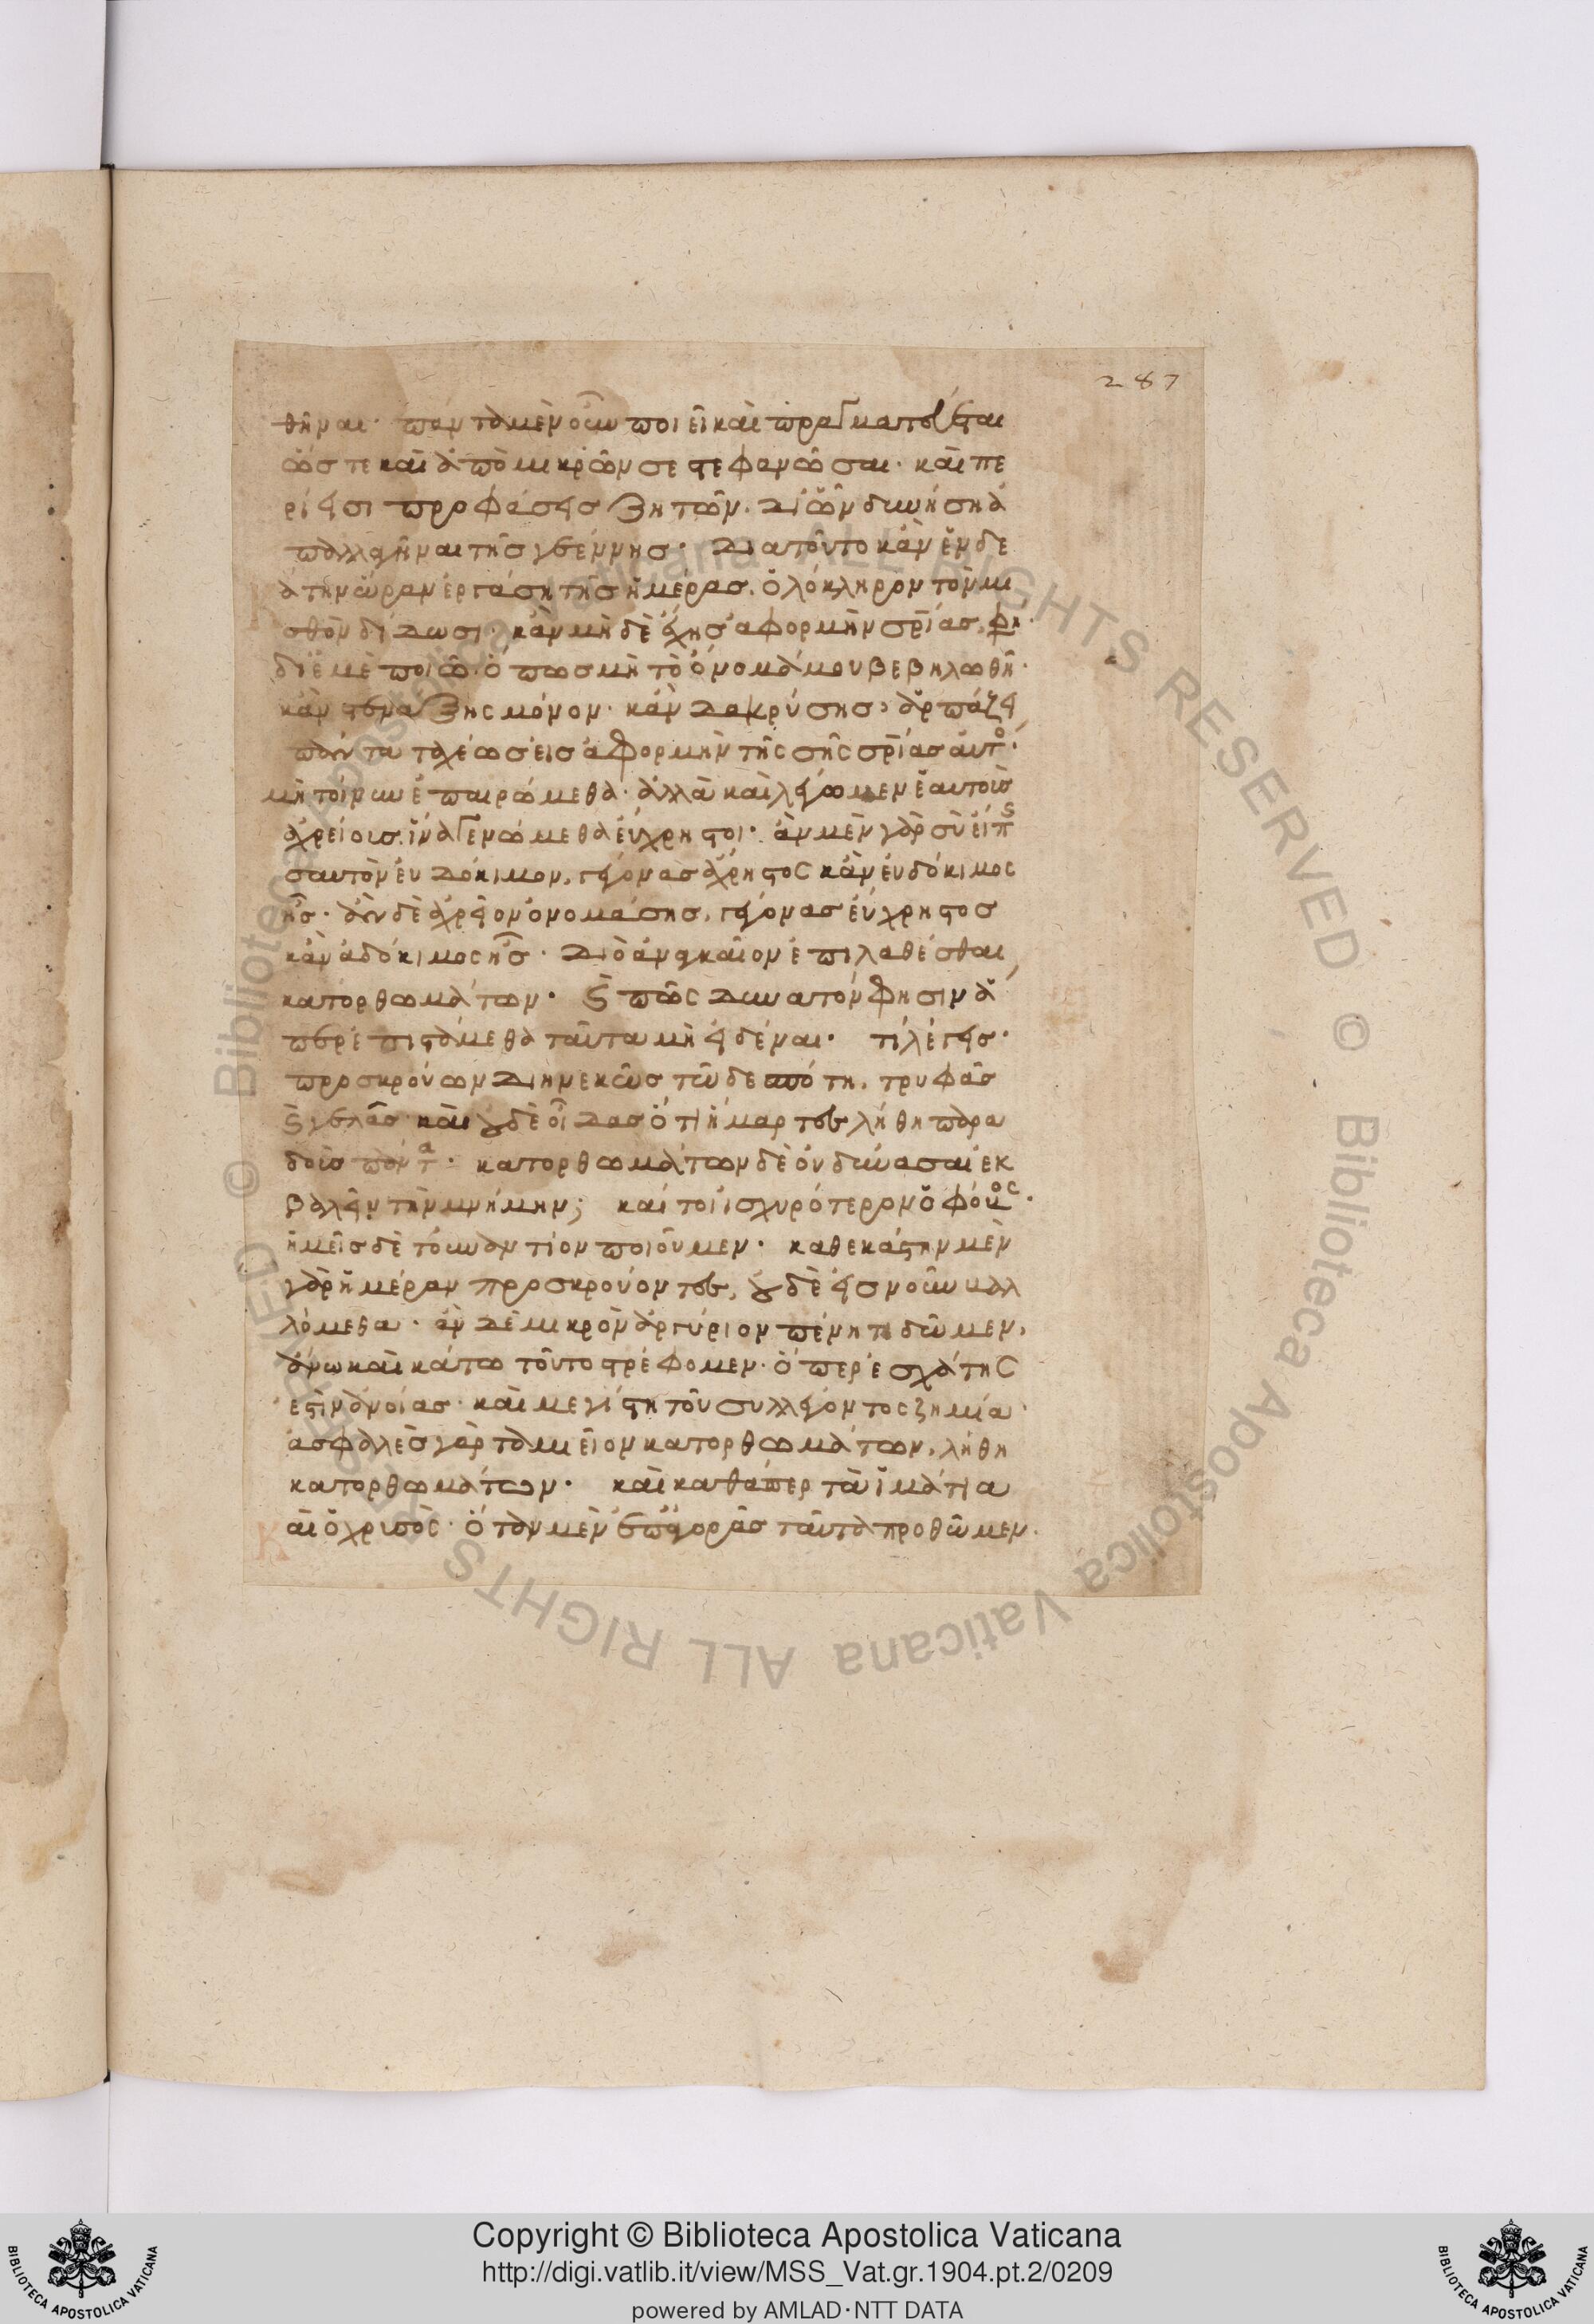 287
θῆναι· πάντα μὲν οὖν ποιεῖ καὶ πραγματεύεται
ὥστε καὶ ἀπὸ μικρῶν σε στεφανῶσαι· καὶ πε
ριεισι προφάσεις ζητῶν. δι' ὧν δυνήση ἀ
παλλαγῆναι τῆς γεέννης· διατοῦτο κἂν ἑνδε
κάτην ὥραν ἐργάση τῆς ἡμέρας. ὁλόκληρον τὸν μι
σθὸν δίδωσι· κἂν μὴ δὲ ἔχης ἀφορμὴν σρίας, φη·
δι' ἐμὲ ποιῶ· ὅπως μὴ τὸ ὄνομά μου βεβηλωθῆ·
κἂν στενάξης μόνον· κἂν δακρύσης, ἁρπάζει
πάντα ταχέως εἰς ἀφορμὴν τῆς σῆς σρίας αὐτο·
μὴ τοίνυν ἐπαιρώμεθα· ἀλλὰ καὶ λέγωμεν ἑαυτοὺς
ἀχρείους. ἵνα γενώμεθα εὔχρηστοι· ἂν μὲν γὰρ σὺ εἴπης
σαυτὸν εὐδόκιμον, γέγονας ἄχρηστος κἂν εὐδόκιμος
ῆς· ἂν δὲ ἀχρεῖον ὀνομάσης, γέγονας εὔχρηστος
κἂν ἀδόκιμος ῆς· διὸ ἀναγκαῖον ἐπιλαθέσθαι
κατορθωμάτων· καὶ πῶς δυνατόν φησιν ἅ
περ ἐπιστάμεθα ταῦτα μὴ εἰδέναι· τί λέγεις·
προσκρούων διηνεκῶς τῶ δεσπότη, τρυφᾶς
καὶ γελᾶς· καὶ οὐδὲ οἶδας ὅτι ἥμαρτες λήθη παρα
δοὺς πάντα· κατορθωμάτων δὲ οὐ δύνασαι ἐκ
βαλεῖν τὴν μνήμην; καίτοι ἰσχυρότερον ὁ φόβος·
ἡμεῖς δὲ τουναντίον ποιοῦμεν· καθεκάστην μὲν
γὰρ ἡμέραν προσκρούοντες, οὐδὲ εἰς νοῦν βαλ
λόμεθα· ἂν δὲ μικρὸν ἀργύριον πένητι δῶμεν,
ἄνω καὶ κάτω τοῦτο στρέφομεν· ὅπερ ἐσχάτης
ἐστὶν ἀνοίας· καὶ μεγίστη τοῦ συλλέγοντος ζημία·
ἀσφαλὲς γὰρ ταμιεῖον κατορθωμάτων, λήθη
κατορθωμάτων· καὶ καθάπερ τὰ ἱμάτια
καὶ ὁ χρυσὸς· ὅταν μὲν ἐπ' ἀγορᾶς ταῦτα προθῶμεν·
Copyright © Biblioteca Apostolica Vaticana
http://digi.vatlib.it/view/MSS_Vat.gr.1904.pt.2/0209
powered by AMLAD·NTT DATA
BIBLIOTECA APOSTOLICA VATICANA
BIBLIOTECA APOSTOLICA VATICANA
© Biblioteca Apostolica Vaticana ALL RIGHTS RESERVED © Biblioteca Apostolica Vaticana ALL RIGHTS RESERVED